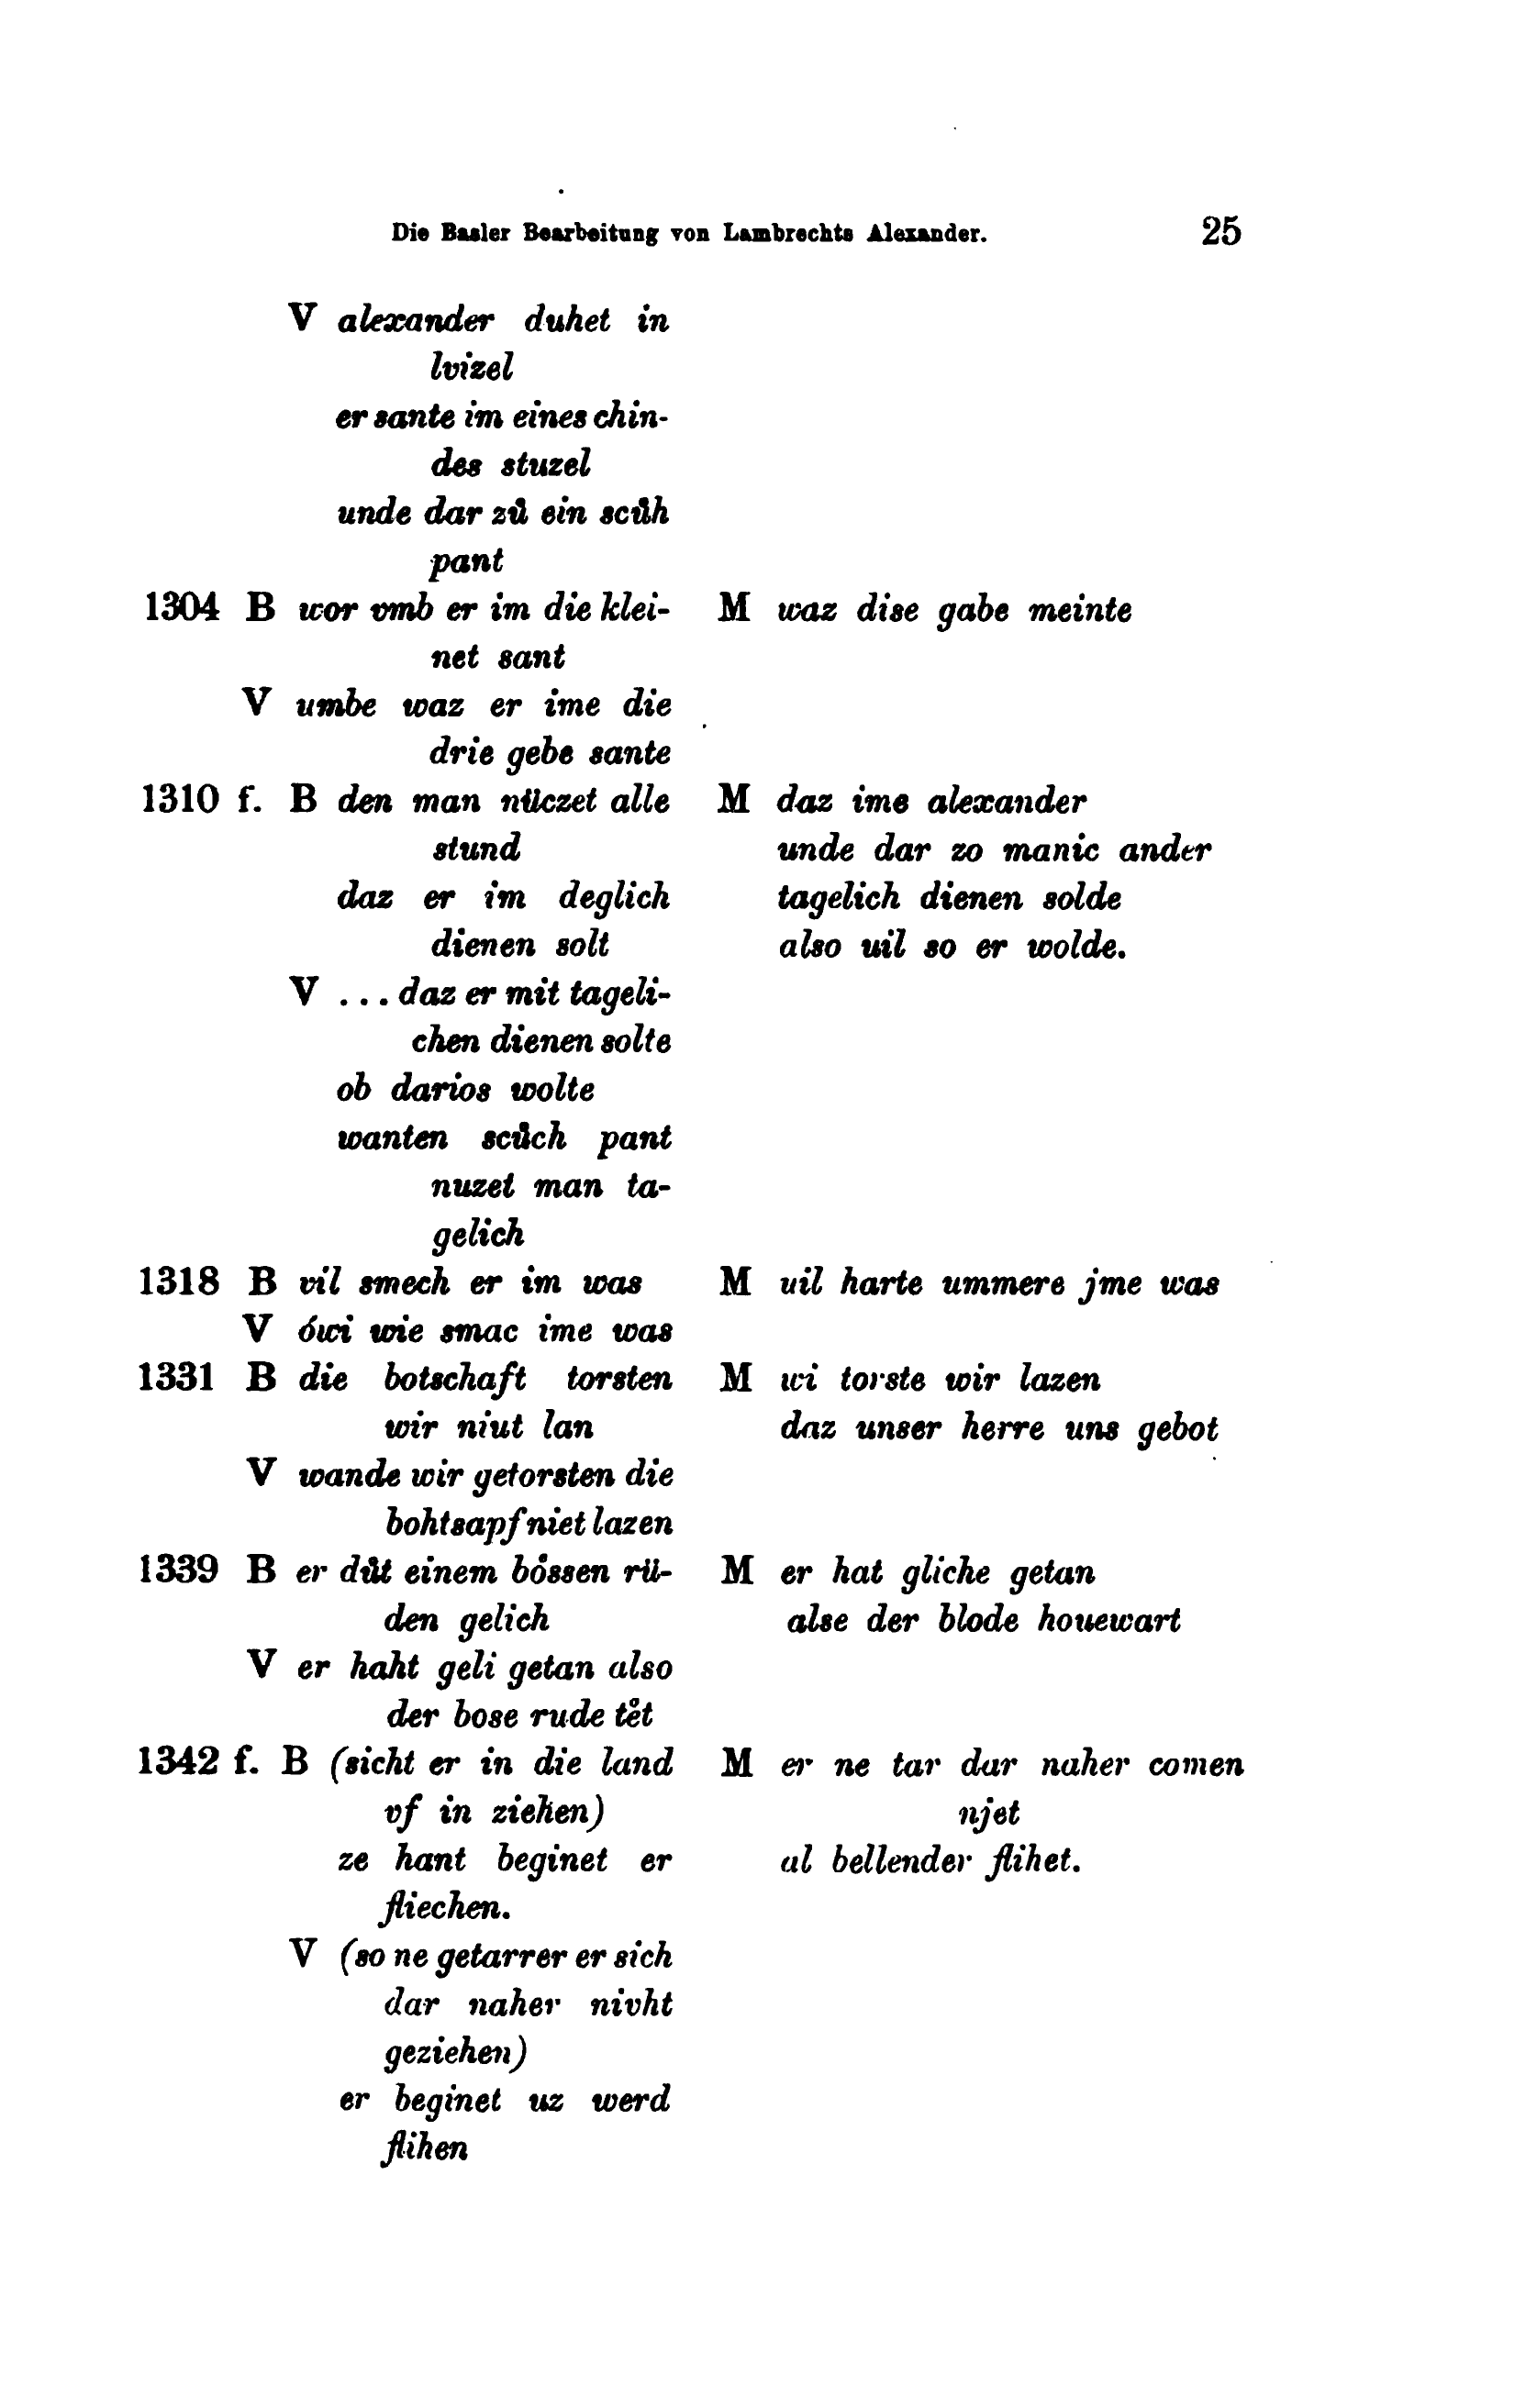 Die Basler Bearbeitung von Lambrechts Alexander. 25
V alexander duhet in
lvizel
er sante im eines chin-
des stuzel
unde dar zů ein scůh
pant
1304 B wor vmb er im die klei- M waz dise gabe meinte
net sant
V umbe waz er ime die
drie gebe sante
1310 f. B den man nüczet alle M daz ime alexander
stund unde dar zo manic ander
daz er im deglich tagelich dienen solde
dienen solt also uil so er wolde.
V ... daz er mit tageli-
chen dienen solte
ob darios wolte
wanten scůch pant
nuzet man ta-
gelich
1318 B vil smech er im was M uil harte ummere jme was
V ówi wie smac ime was
1331 B die botschaft torsten M wi torste wir lazen
wir niut lan daz unser herre uns gebot
V wande wir getorsten die
bohtsapf niet lazen
1339 B er důt einem bo̊ssen rü- M er hat gliche getan
den gelich alse der blode houewart
V er haht geli getan also
der bose rude te̊t
1342 f. B (sicht er in die land M er ne tar dar naher comen
vf in ziehen) njet
ze hant beginet er al bellender flihet.
fliechen.
V (so ne getarrer er sich
dar naher nivht
geziehen)
er beginet uz werd
flihen